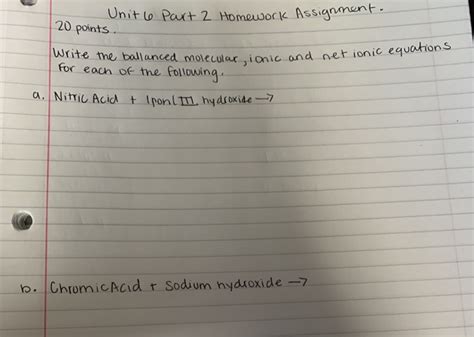 Unit 6 Part 2 Homework Assignment.
20 points.
Write the ballanced molecular, ionic and net ionic equations
for each of the following.
a. Nitric Acid + Ipon(III hydroxide →
b. Chromic Acid + Sodium hydroxide →